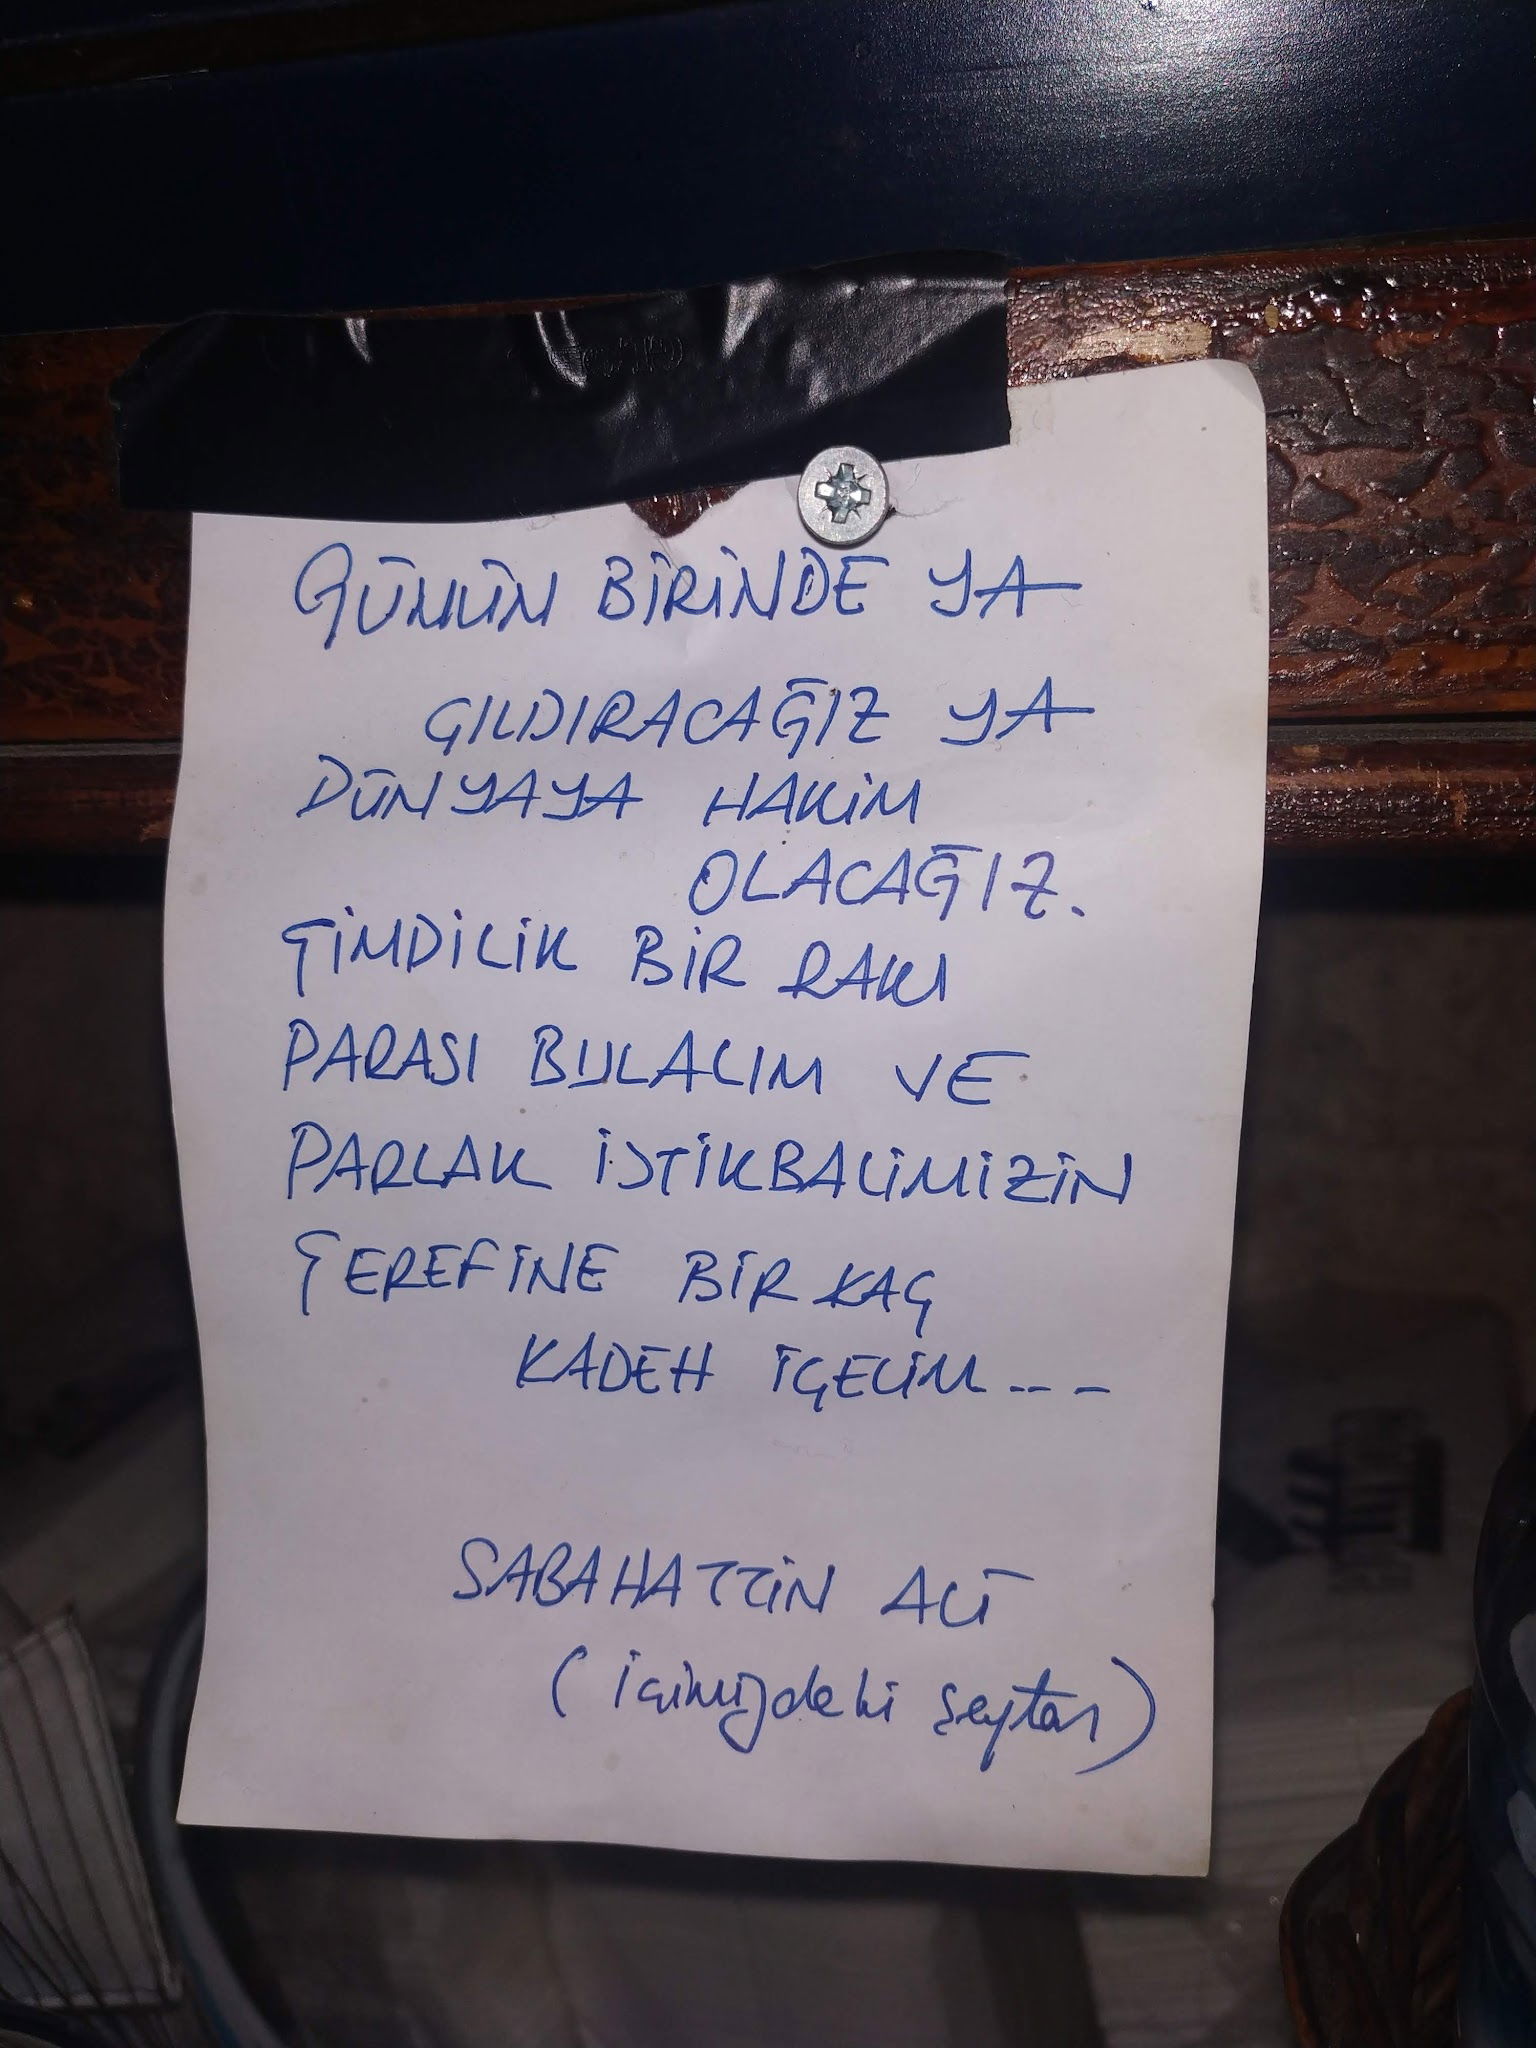 GÜNÜN BİRİNDE YA
ÇILDIRACAĞIZ YA
DÜNYAYA HAKİM
OLACAĞIZ.
ŞİMDİLİK BİR RAKI
PARASI BULALIM VE
PARLAK İSTİKBALİMİZİN
ŞEREFİNE BİR KAÇ
KADEH İÇELİM...
SABAHATTİN ALİ
(içimizdeki şeytan)